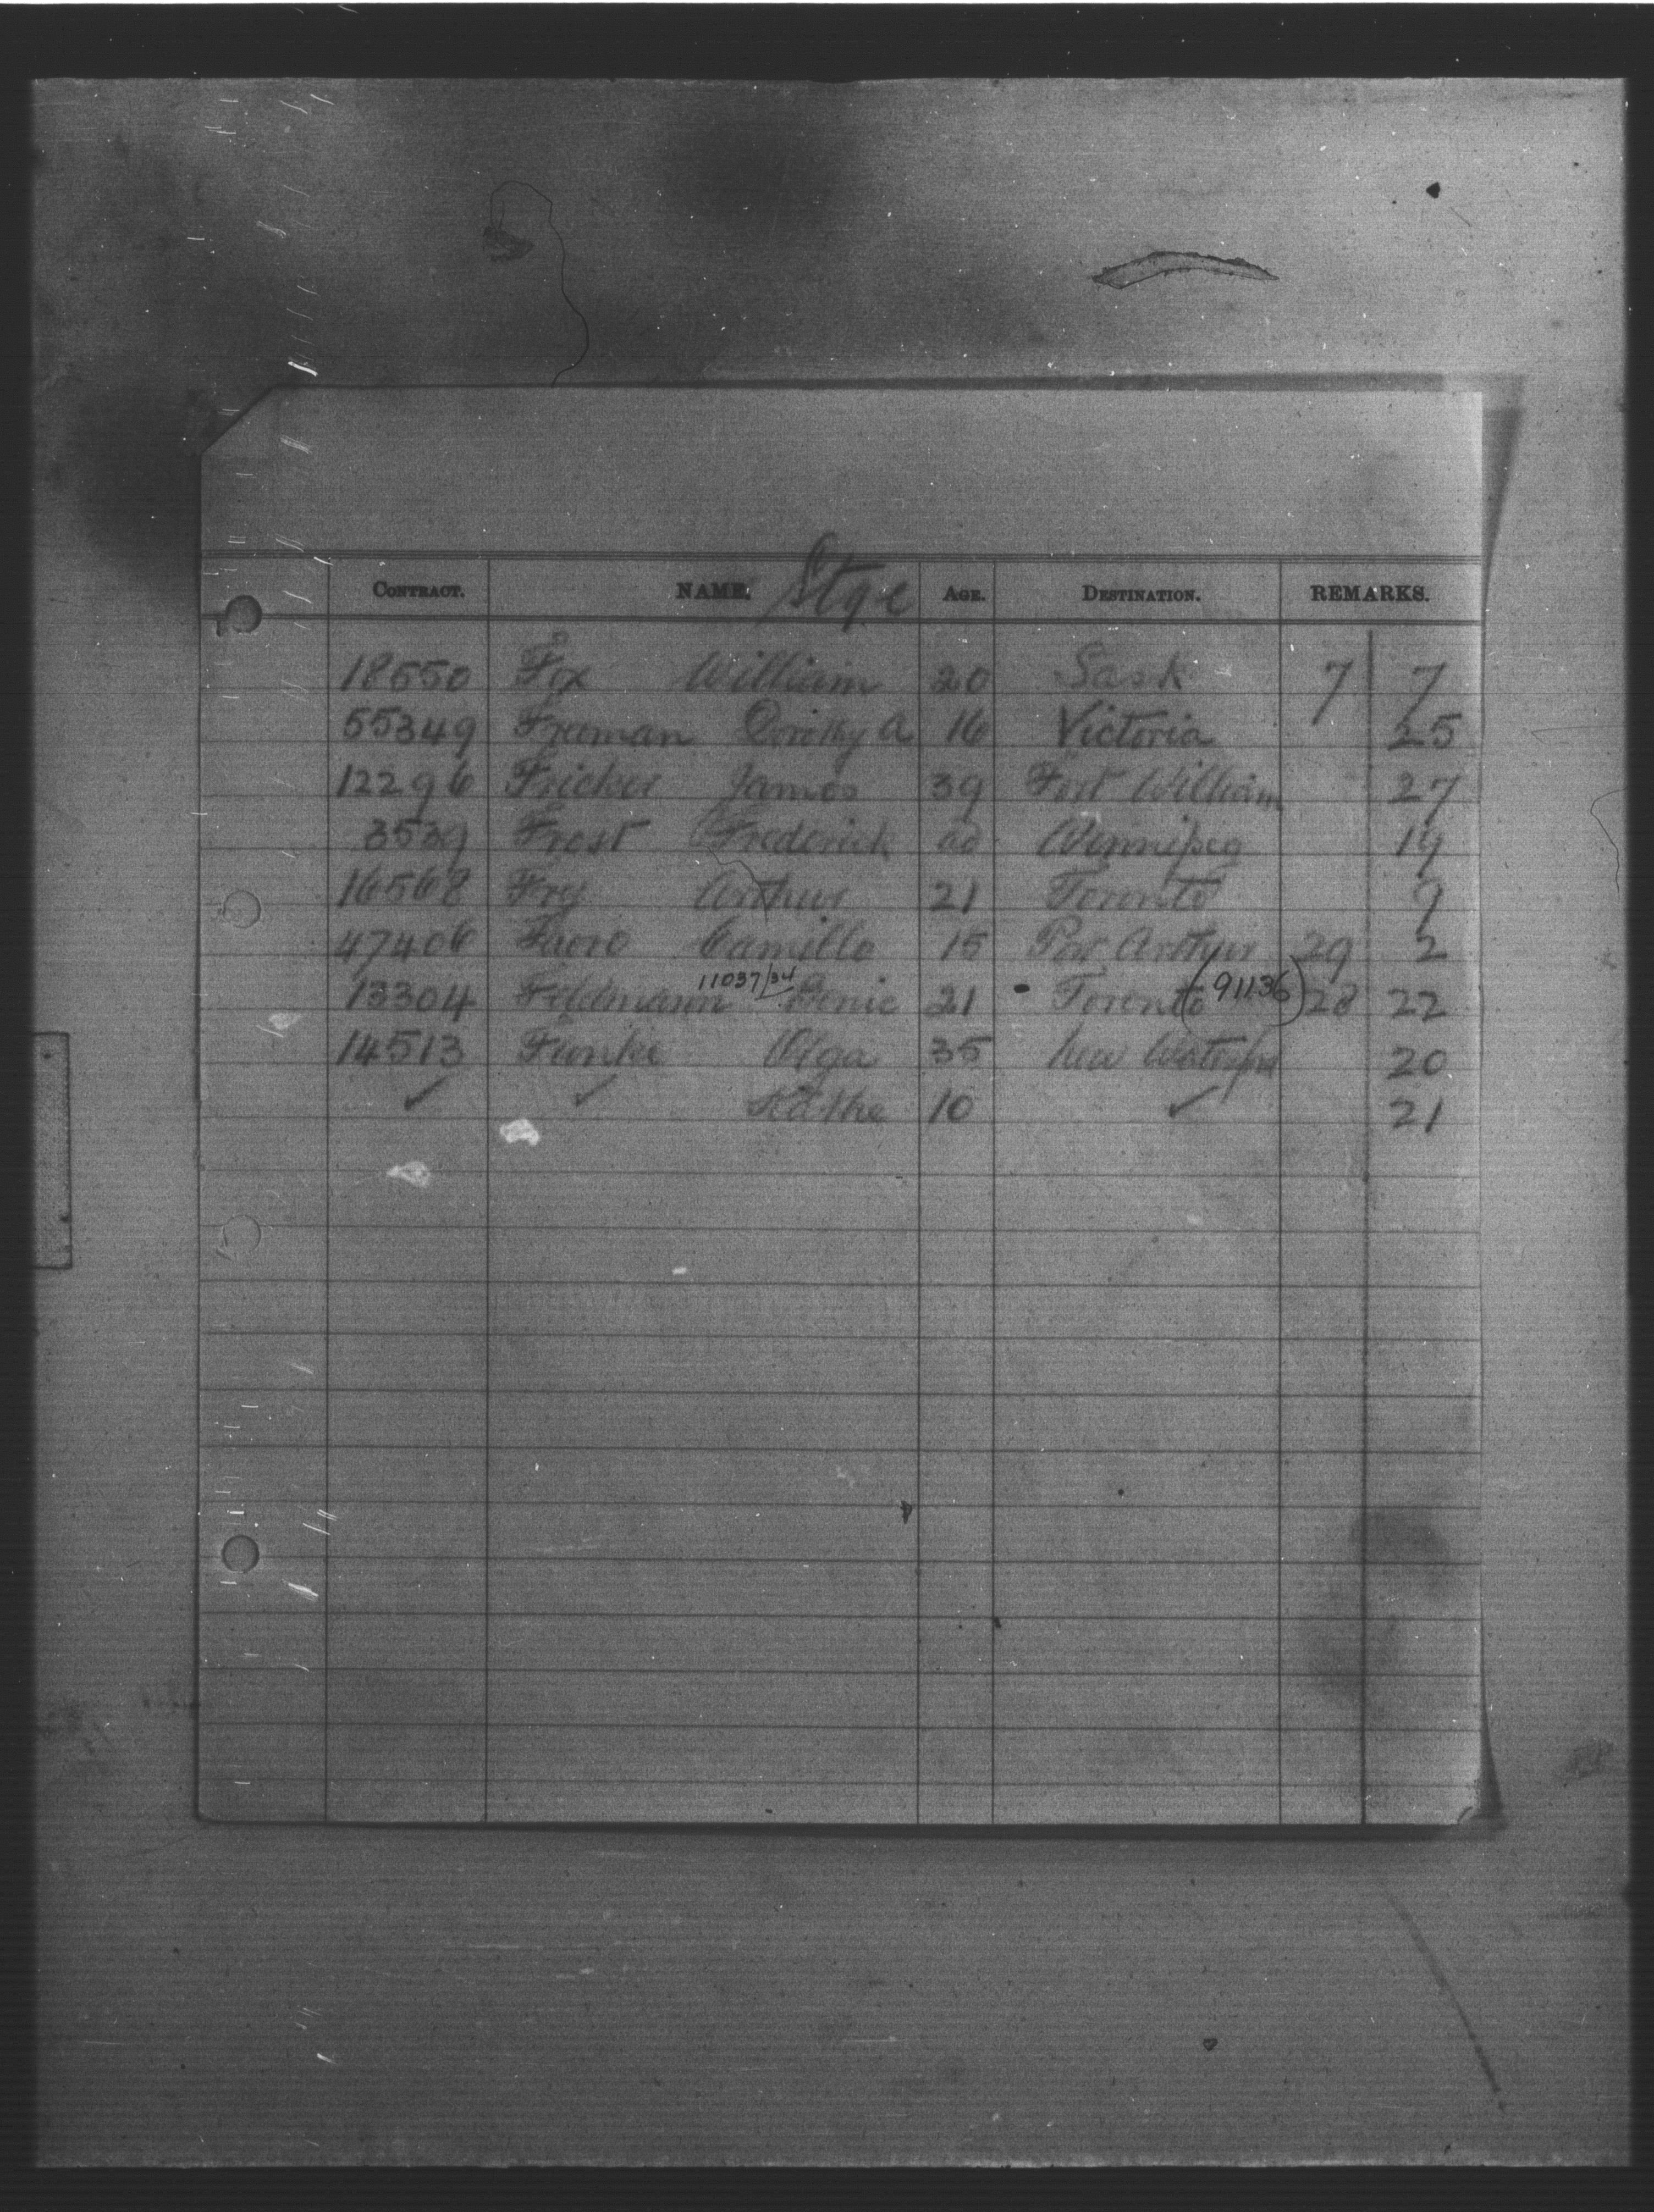 CONTRACT. NAME. Stge AGE. DESTINATION. REMARKS.
18550 Fox William 20 Sask 7 7
55349 Freeman Dorothy A 16 Victoria 25
12296 Fricker James 39 Fort William 27
3539 Frost Frederick Winnipeg 19
16568 Fry Arthur 21 Toronto 9
47406 Favro Camillo 15 Port Arthur 29 2
11037/34 (91136)
13304 Feldmann 21 Toronto 28 22
14513 Funke Olga 35 New 20
✓ ✓ Käthe 10 ✓ 21